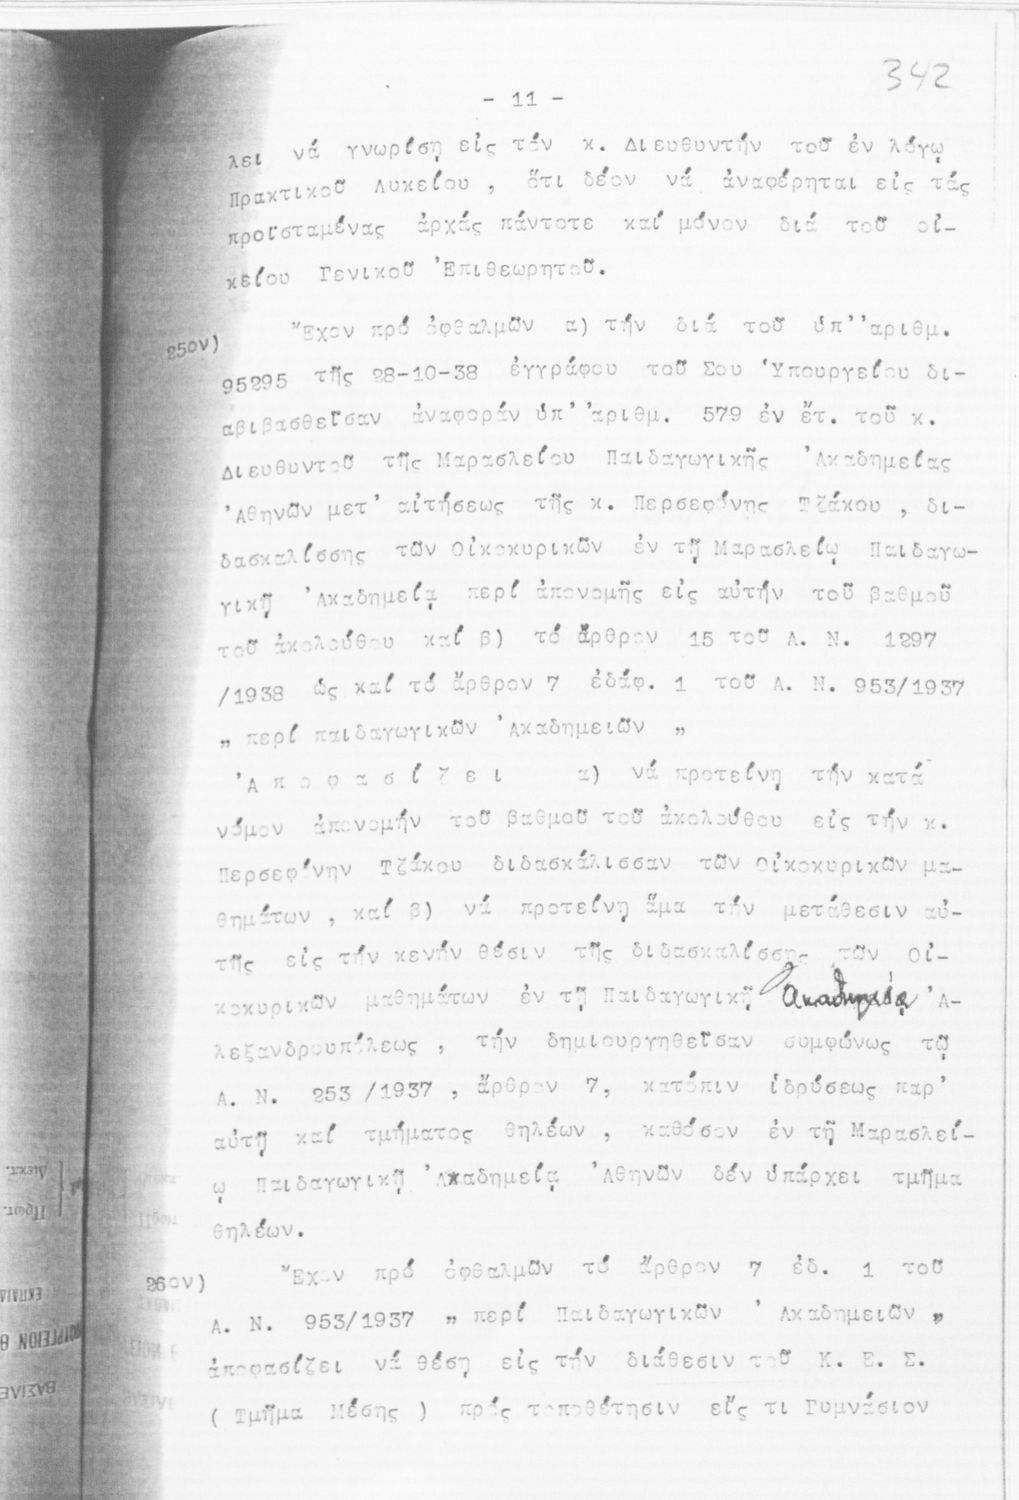 342
- 11 -
λει νά γνωρίσῃ εἰς τόν κ. Διευθυντήν τοῦ ἐν λόγῳ
Πρακτικοῦ Λυκείου , ὅτι δέον νά ἀναφέρηται εἰς τάς
προϊσταμένας ἀρχάς πάντοτε καί μόνον διά τοῦ οἰ-
κείου Γενικοῦ Ἐπιθεωρητοῦ.
25ον) Ἔχον πρό ὀφθαλμῶν α) τήν διά τοῦ ὑπ''αριθμ.
95295 τῆς 28-10-38 ἐγγράφου τοῦ Σου Ὑπουργείου δι-
αβιβασθεῖσαν ἀναφοράν ὑπ' ἀριθμ. 579 ἐν ἔτ. τοῦ κ.
Διευθυντοῦ τῆς Μαρασλείου Παιδαγωγικῆς Ἀκαδημείας
Ἀθηνῶν μετ' αἰτήσεως τῆς κ. Περσεφόνης Τζάκου , δι-
δασκαλίσσης τῶν Οἰκοκυρικῶν ἐν τῇ Μαρασλείῳ Παιδαγω-
γικῇ Ἀκαδημείᾳ περί ἀπονομῆς εἰς αὐτήν τοῦ βαθμοῦ
τοῦ ἀκολούθου καί β) τό ἄρθρον 15 τοῦ Α. Ν. 1297
/1938 ὡς καί τό ἄρθρον 7 ἐδάφ. 1 τοῦ Α. Ν. 953/1937
„ περί παιδαγωγικῶν Ἀκαδημειῶν „
Ἀ π ο φ α σ ί ζ ε ι α) νά προτείνῃ τήν κατά
νόμον ἀπονομήν τοῦ βαθμοῦ τοῦ ἀκολούθου εἰς τήν κ.
Περσεφόνην Τζάκου διδασκάλισσαν τῶν Οἰκοκυρικῶν μα-
θημάτων , καί β) νά προτείνῃ ἅμα τήν μετάθεσιν αὐ-
τῆς εἰς τήν κενήν θέσιν τῆς διδασκαλίσσης τῶν Οἰ-
κοκυρικῶν μαθημάτων ἐν τῇ Παιδαγωγικῇ Ἀκαδημείᾳ Ἀ-
λεξανδρουπόλεως , τήν δημιουργηθεῖσαν συμφώνως τῷ
Α. Ν. 253 /1937 , ἄρθρον 7, κατόπιν ἱδρύσεως παρ'
αὐτῇ καί τμήματος θηλέων , καθόσον ἐν τῇ Μαρασλεί-
ῳ Παιδαγωγικῇ Ἀκαδημείᾳ Ἀθηνῶν δέν ὑπάρχει τμῆμα
θηλέων.
26ον) Ἔχον πρό ὀφθαλμῶν τό ἄρθρον 7 ἐδ. 1 τοῦ
Α. Ν. 953/1937 „ περί Παιδαγωγικῶν Ἀκαδημειῶν „
ἀποφασίζει νά θέσῃ εἰς τήν διάθεσιν τοῦ Κ. Ε. Σ.
( Τμῆμα Μέσης ) πρός τοποθέτησιν εἴς τι Γυμνάσιον